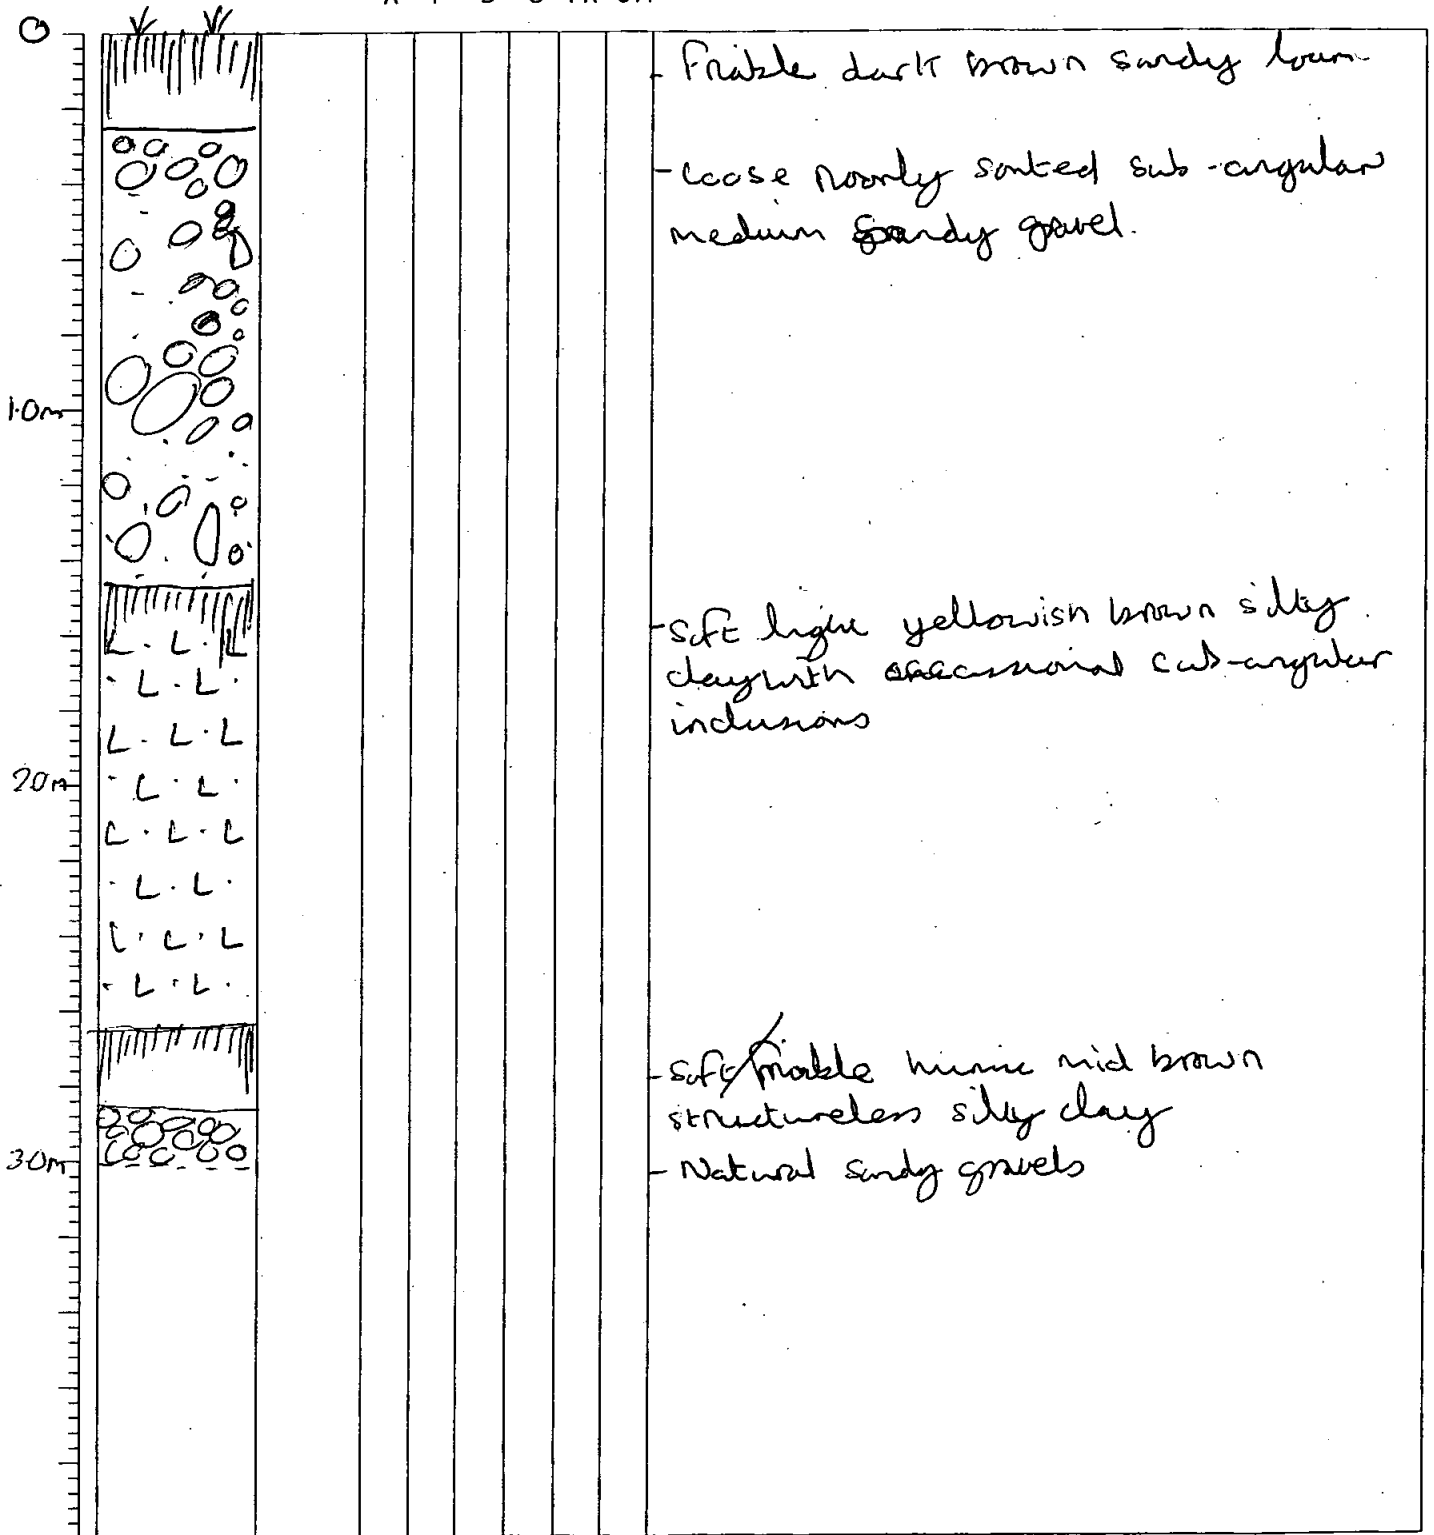 0
- Friable dark brown sandy loam
- Loose Poorly sorted sub-angular
medium sandy gravel.
1.0m
- Soft light yellowish brown silty
clay with occassional sub-angular
inclusions
2.0m
- Soft/friable humic mid brown
structureless silty clay
3.0m
- Natural sandy gravels